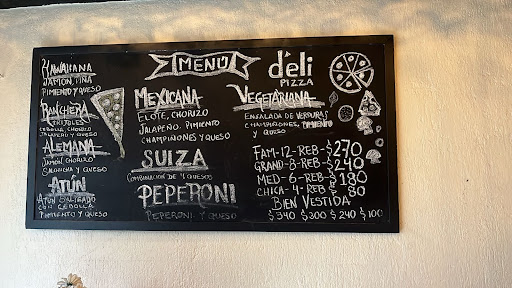 MENÚ
déli
PIZZA
HAWAIIANA
JAMÓN, PIÑA
PIMIENTO Y QUESO
RANCHERA
FRIJOLES
CEBOLLA, CHORIZO
JALAPEÑO Y QUESO
ALEMANA
JAMÓN, CHORIZO
SALCHICHA Y QUESO
ATÚN
ATÚN SALTEADO
CON CEBOLLA
PIMIENTO Y QUESO
MEXICANA
ELOTE, CHORIZO
JALAPEÑO, PIMIENTO
CHAMPIÑONES Y QUESO
SUIZA
COMBINACIÓN DE 4 QUESOS
PEPERONI
PEPERONI Y QUESO
VEGETARIANA
ENSALADA DE VERDURAS
CHAMPIÑONES, PIMIENTO
Y QUESO
FAM-12-REB-$270
GRAND-8-REB-$240
MED-6-REB-$180
CHICA-4-REB $ 80
BIEN VESTIDA
$340 $300 $240 $100